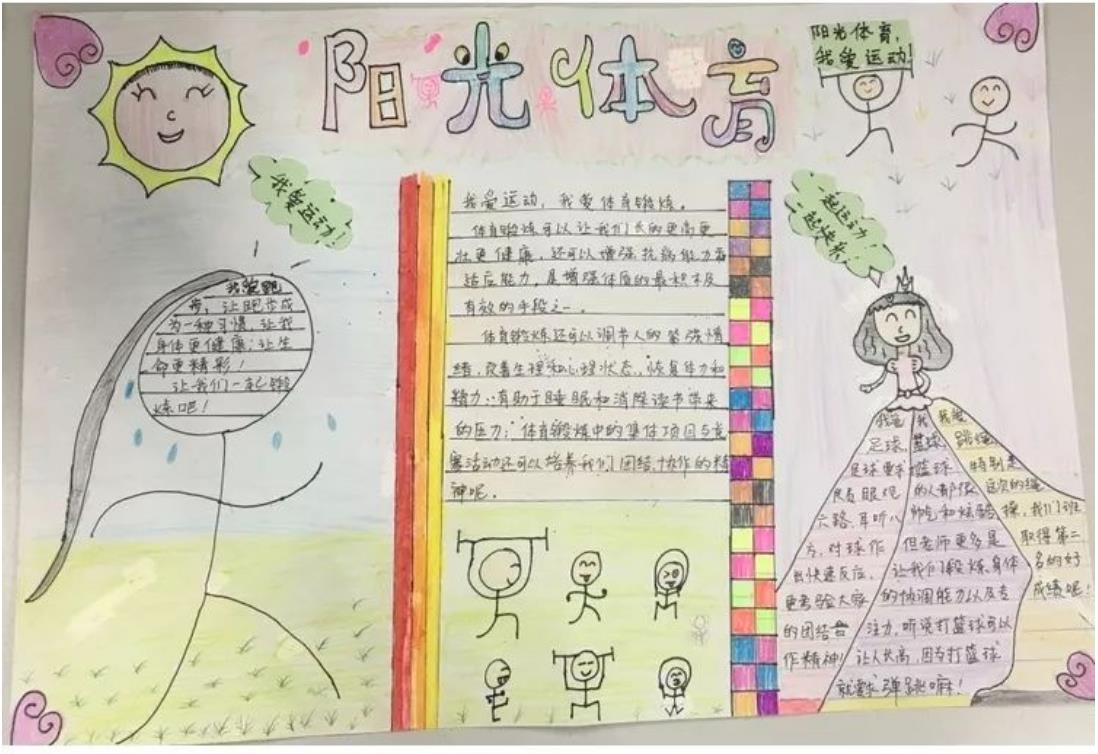 阳光体育
阳光体育,
我爱运动!
我爱运动!
我爱跑
步,让跑步成
为一种习惯,让我
身体更健康;让生
命更精彩!
让我们一起锻
炼吧!
我爱运动,我爱体育锻炼。
体育锻炼可以让我们长的更高更
壮更健康,还可以增强抗病能力和
适应能力,是增强体质的最积极
有效的手段之一。
体育锻炼还可以调节人的紧张情
绪,改善生理和心理状态,恢复体力和
精力;有助于睡眠和消除读书带来
的压力;体育锻炼中的集体项目与竞
赛活动还可以培养我们团结、协作的精
神呢。
一起运动!
一起快乐!
我爱
足球,
足球要求
良着眼观
六路、耳听八
方,对球作
出快速反应,
更考验大家
的团结合
作精神!
我
篮球,
篮球
的人都很
帅气和炫酷
但老师更多是
让我们锻炼身体
的协调能力以及专
注力,听说打篮球可以
让人长高,因为打篮球
就要求弹跳嘛!
我爱
跳绳
特别是
这次的绳
操,我们班
取得第二
名的好
成绩呢!